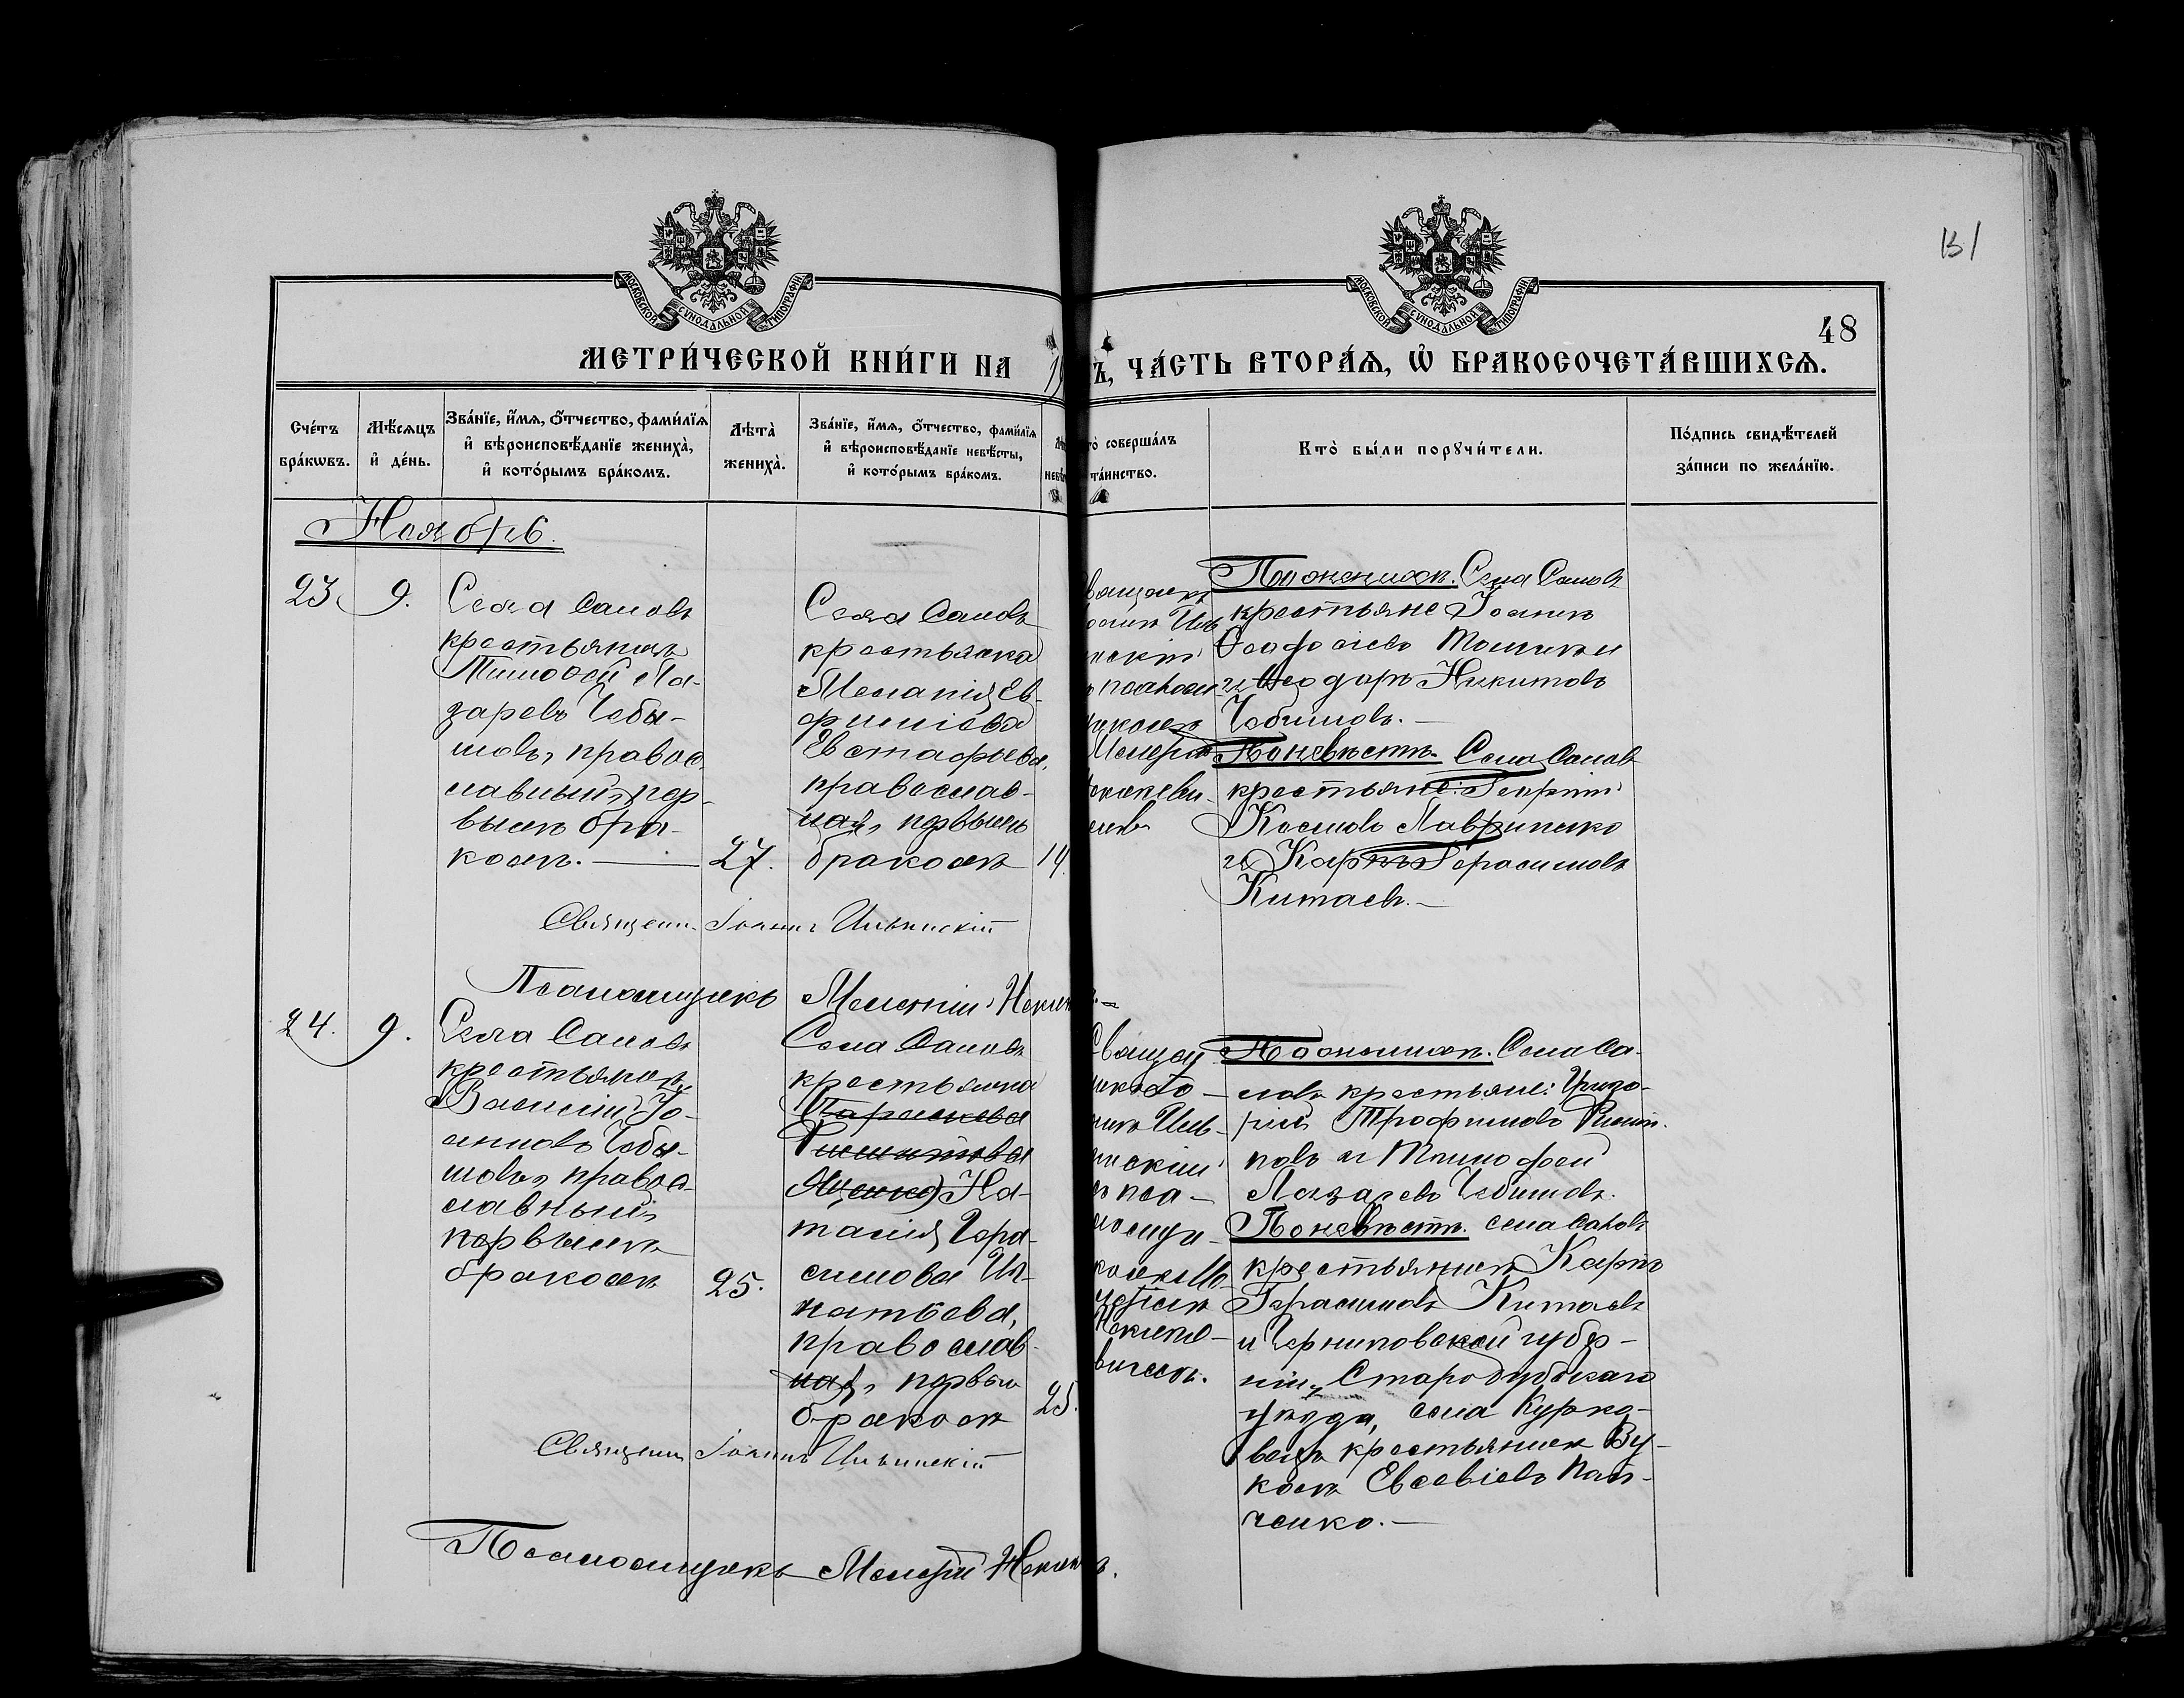 131
48
МОСКОВСКОЙ СѴНОДАЛЬНОЙ ТИПОГРАФІИ
МОСКОВСКОЙ СѴНОДАЛЬНОЙ ТИПОГРАФІИ
МЕТРИ́ЧЕСКОЙ КНИ́ГИ НА
Ъ, ЧА́СТЬ ВТОРА́Ѧ, Ѽ БРАКОСОЧЕТА́ВШИХСѦ.
Сче́тъ
бра́кωвъ.
Мѣ́сяцъ
и҆ де́нь.
Зва́нїе, и҆́мѧ, ѻ҆́тчество, фами́лїѧ
и҆ вѣроисповѣ́данїе жениха̀,
и҆ кото́рымъ бра́комъ.
Лѣта̀
жениха̀.
Зва́нїе, и҆́мѧ, ѻ҆́тчество, фами́лїѧ
и҆ вѣроисповѣ́данїе невѣ́сты,
и҆ кото́рымъ бра́комъ.
то̀ соверша́лъ
та́инство.
Кто̀ бы́ли порꙋчи́тели.
По́дпись свидѣ́телей
за́писи по жела́нїю.
Ноябрь.
23. 9.
Села Самовъ
крестьянинъ
Тимофей Ла-
заревъ Чебы-
шовъ, правос-
лавный, пер-
вымъ бра-
комъ. —
27.
Села Самовъ
крестьянка
Меланія Ев-
фиміева
Евстафьева,
православ-
ная, первымъ
бракомъ
14.
нскій
Поженихѣ. Села Самовъ
крестьяне Іоаннъ
и Ѳеодоръ Никитовъ
Чебышовъ. —
Поневѣстѣ. Села Самовъ
крестьяне:
Космовъ Лавриненко
и Карпъ Герасимовъ
Китаевъ. —
Священн. Іоаннъ Ильинскій
Псаломщикъ Мелетій
24. 9.
Села Самовъ
крестьянинъ
Василій Іо-
анновъ Чебы-
шовъ, правос-
лавный,
первымъ
бракомъ
25.
Села Самовъ
крестьянка
Параскева
Яценко) На-
талія Гера-
симова Иг-
натьева,
православ-
ная, первым
бракомъ
25.
Священ
никъ Іо-
аннъ Иль-
инскій
съ пса-
ломщи-
комъ
Поженихѣ. Села Са-
мовъ крестьяне: Григо-
рій Трофимовъ Филип-
повъ и Тимофей
Лазаревъ Чебышовъ.
Поневѣстѣ. села Самовъ
крестьянинъ Карпъ
Герасимовъ Китаевъ
и Черниговской губер-
ніи, Стародубскаго
уѣзда, села Курко-
вичъ крестьянинъ Ву-
колъ Евсевіевъ Пан-
ченко. —
Священн Іоаннъ Ильинскій
Псаломщикъ Мелетій